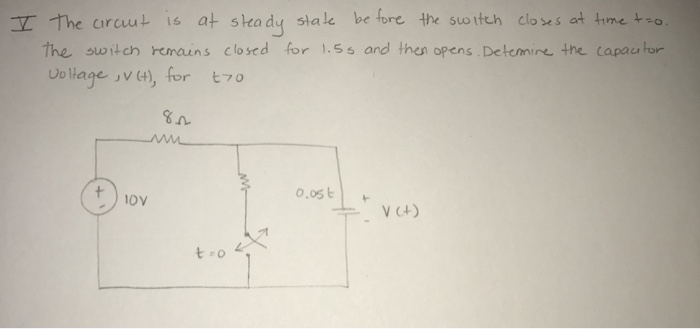 V The circuit is at steady state before the switch closes at time t=0.
The switch remains closed for 1.5s and then opens. Determine the capacitor
Voltage, v(t), for t>0
8Ω
+
-
10V
0.05t
+
-
V(+)
t=0